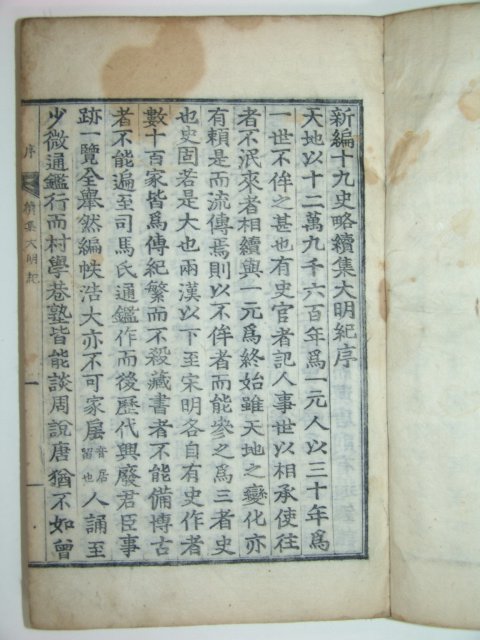 新編十九史略續集大明紀序
天地以十二萬九千六百年爲一元人以三十年爲
一世不侔之甚也有史官者記人事世以相承使往
者不泯來者相續與一元爲終始雖天地之變化亦
有賴是而流傳焉則以不侔者而能參之爲三者史
也史固若是大也兩漢以下至宋明各自有史作者
數十百家皆爲傳紀繁而不殺藏書者不能備博古
者不能遍至司馬氏通鑑作而後歷代興廢君臣事
跡一覽全舉然編帙浩大亦不可家扂音居留也人誦至
少微通鑑行而村學巷塾皆能談周說唐猶不如曾
序
續集大明紀
一